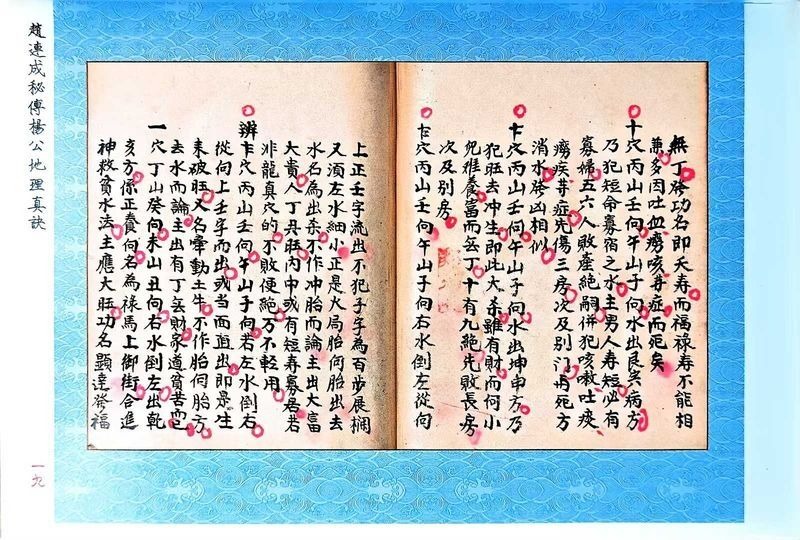 趙連成秘傳楊公地理真訣
無丁發功名即夭寿而福禄寿不能相
兼多因吐血癆咳等症而死矣
十穴丙山壬向午山子向水出艮寅病方
乃犯短命寡宿之水主男人寿短必有
寡婦五六人敗產絕嗣併犯咳嗽吐痰
癆疾等症先傷三房次及別门再死方
消水發凶相似
十穴丙山壬向午山子向水出坤申方乃
犯旺去冲生即此大杀雖有財而何小
兒难養富而無丁十有九絕先敗長房
次及别房
七穴丙山壬向午山子向右水倒左從向
上正壬字流出不犯子字為百步展欄
又須左水細小正是火局胎向胎出去
水名為出杀不作冲胎而論主出大富
大貴人丁具旺內中或有短寿寡居若
非龍真穴的不敗便絕万不輕用
辨七穴丙山壬向午山子向若左水倒右
從向上壬字而出或当面直出即是生
来破旺又名牽動土牛不作胎向胎方
去水而論主出有丁無財家道貧苦而已
一穴丁山癸向未山丑向右水倒左出乾
亥方係正養向名為禄馬上御街合進
神救貧水法主應大旺功名顯達發福
一九